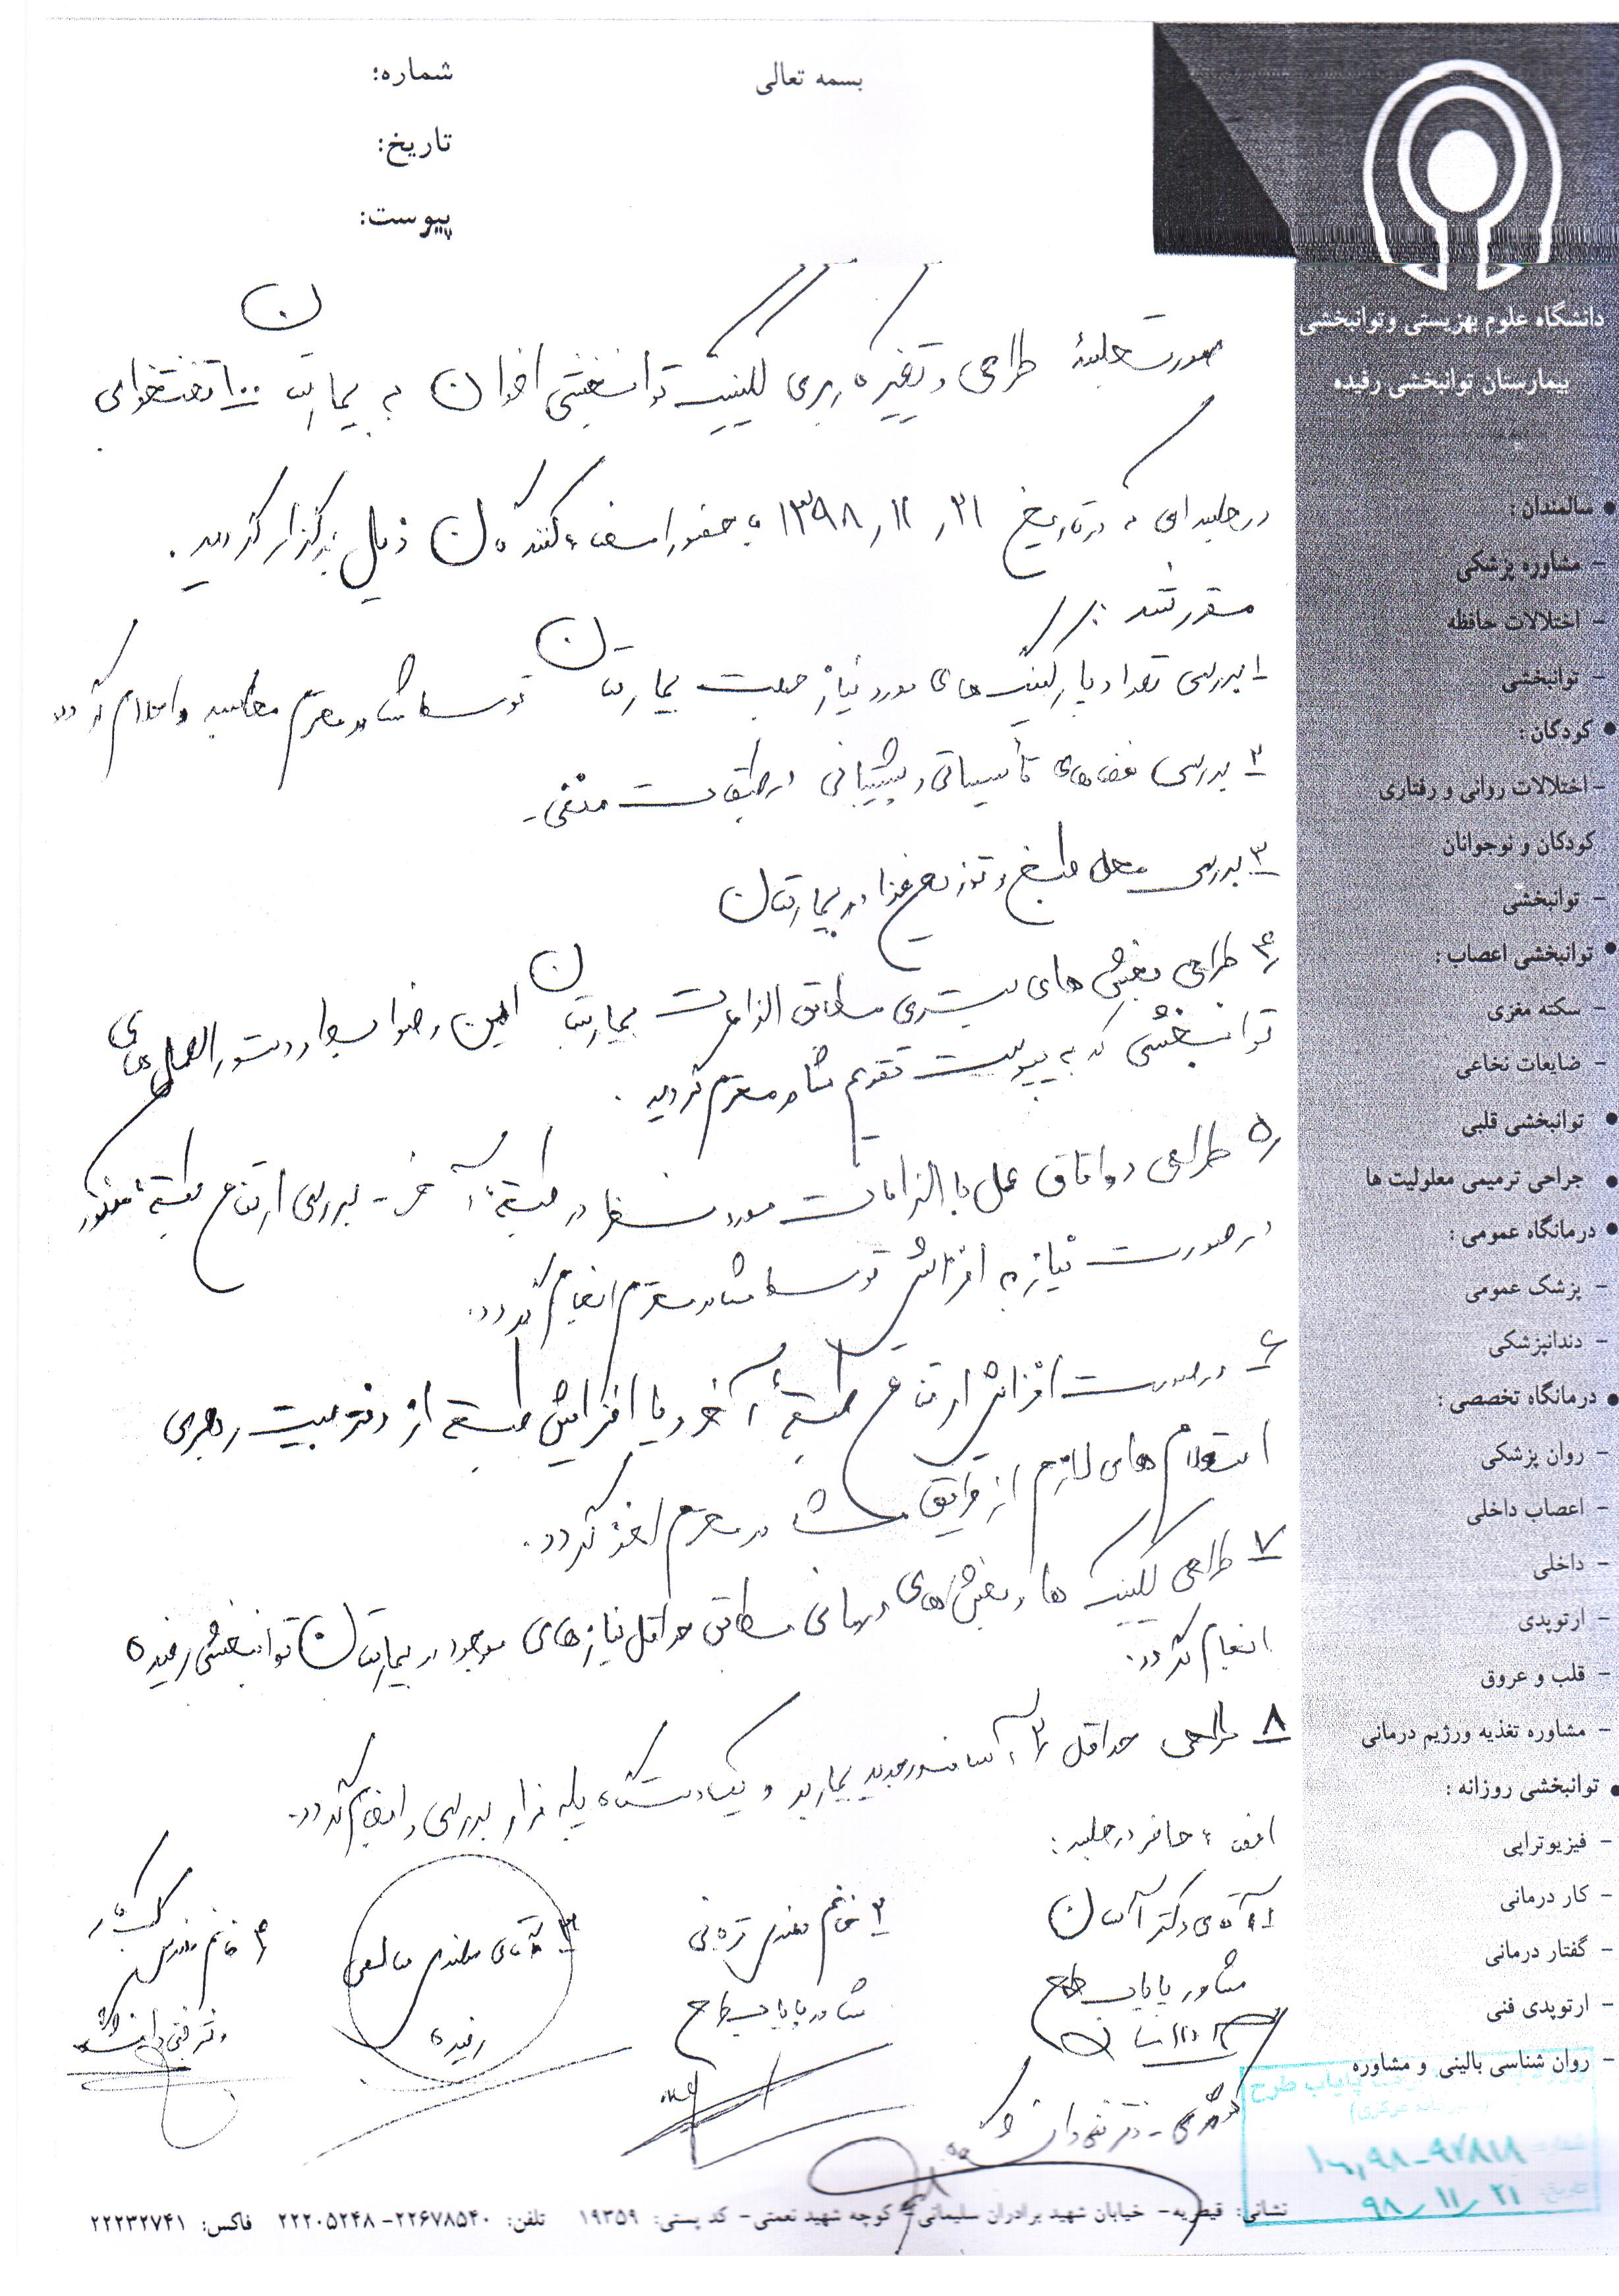 بسمه تعالی
شماره:
تاریخ:
پیوست:
دانشگاه علوم بهزیستی وتوانبخشی
بیمارستان توانبخشی رفیده
صورتجلسهٔ طراحی و تغییر کاربری کلینیک توانبخشی اخوان به بیمارستان ۱۰۰ تختخوابی
در جلسه‌ای که در تاریخ ۱۳۹۸٫۱۱٫۲۱ با حضور امضاء کنندگان ذیل برگزار گردید.
مقرر شد:
۱- بررسی تعداد پارکینگ‌های مورد نیاز جهت بیمارستان توسط مشاور محترم محاسبه و اعلام گردد.
۲- بررسی فضاهای تأسیساتی و پشتیبانی در طبقات منفی-
۳- بررسی محل طبخ و توزیع غذا در بیمارستان
۴- طراحی بخش های بستری مطابق الزامات بیمارستان ایمن و ضوابط و دستورالعمل های
توانبخشی که به پیوست تقدیم مشاور محترم گردید.
۵- طراحی دو اتاق عمل با الزامات مورد نظر در طبقه آخر - بررسی ارتفاع طبقهٔ مذکور
در صورت نیاز به افزایش توسط مشاور محترم انجام گردد.
۶- در صورت افزایش ارتفاع طبقهٔ آخر و یا افزایش طبقه از دفتر بیت رهبری
استعلام های لازم از طریق مشاور محترم اخذ گردد.
۷- طراحی کلینیک ها و بخش‌های درمانی مطابق حداقل نیازهای موجود در بیمارستان توانبخشی رفیده
انجام گردد.
۸- طراحی حداقل ۲ آسانسور جدید بیماربر و یک دستگاه پله فرار بررسی و انجام گردد.
اعضاء حاضر در جلسه:
۱- آقای دکتر آسمان
مشاور پایاب طرح
۲- خانم مهندس
مشاور پایاب طرح
۳- آقای مهندس صالحی
رفیده
۴- خانم مهندس
دفتر فنی دانشگاه
دفتر فنی دانشگاه
● سالمندان :
- مشاوره پزشکی
- اختلالات حافظه
- توانبخشی
● کودکان :
- اختلالات روانی و رفتاری
کودکان و نوجوانان
- توانبخشی
● توانبخشی اعصاب :
- سکته مغزی
- ضایعات نخاعی
● توانبخشی قلبی
● جراحی ترمیمی معلولیت ها
● درمانگاه عمومی :
- پزشک عمومی
- دندانپزشکی
● درمانگاه تخصصی :
- روان پزشکی
- اعصاب داخلی
- داخلی
- ارتوپدی
- قلب و عروق
- مشاوره تغذیه ورژیم درمانی
● توانبخشی روزانه :
- فیزیوتراپی
- کار درمانی
- گفتار درمانی
- ارتوپدی فنی
- روان شناسی بالینی و مشاوره
پایاب طرح
شماره:
تاریخ: ۹۸/۱۱/۲۱
نشانی: قیطریه- خیابان شهید برادران سلیمانی- کوچه شهید نعمتی- کد پستی: ۱۹۳۵۹ تلفن: ۲۲۶۷۸۵۴۰- ۲۲۲۰۵۲۴۸ فاکس: ۲۲۲۳۲۷۴۱